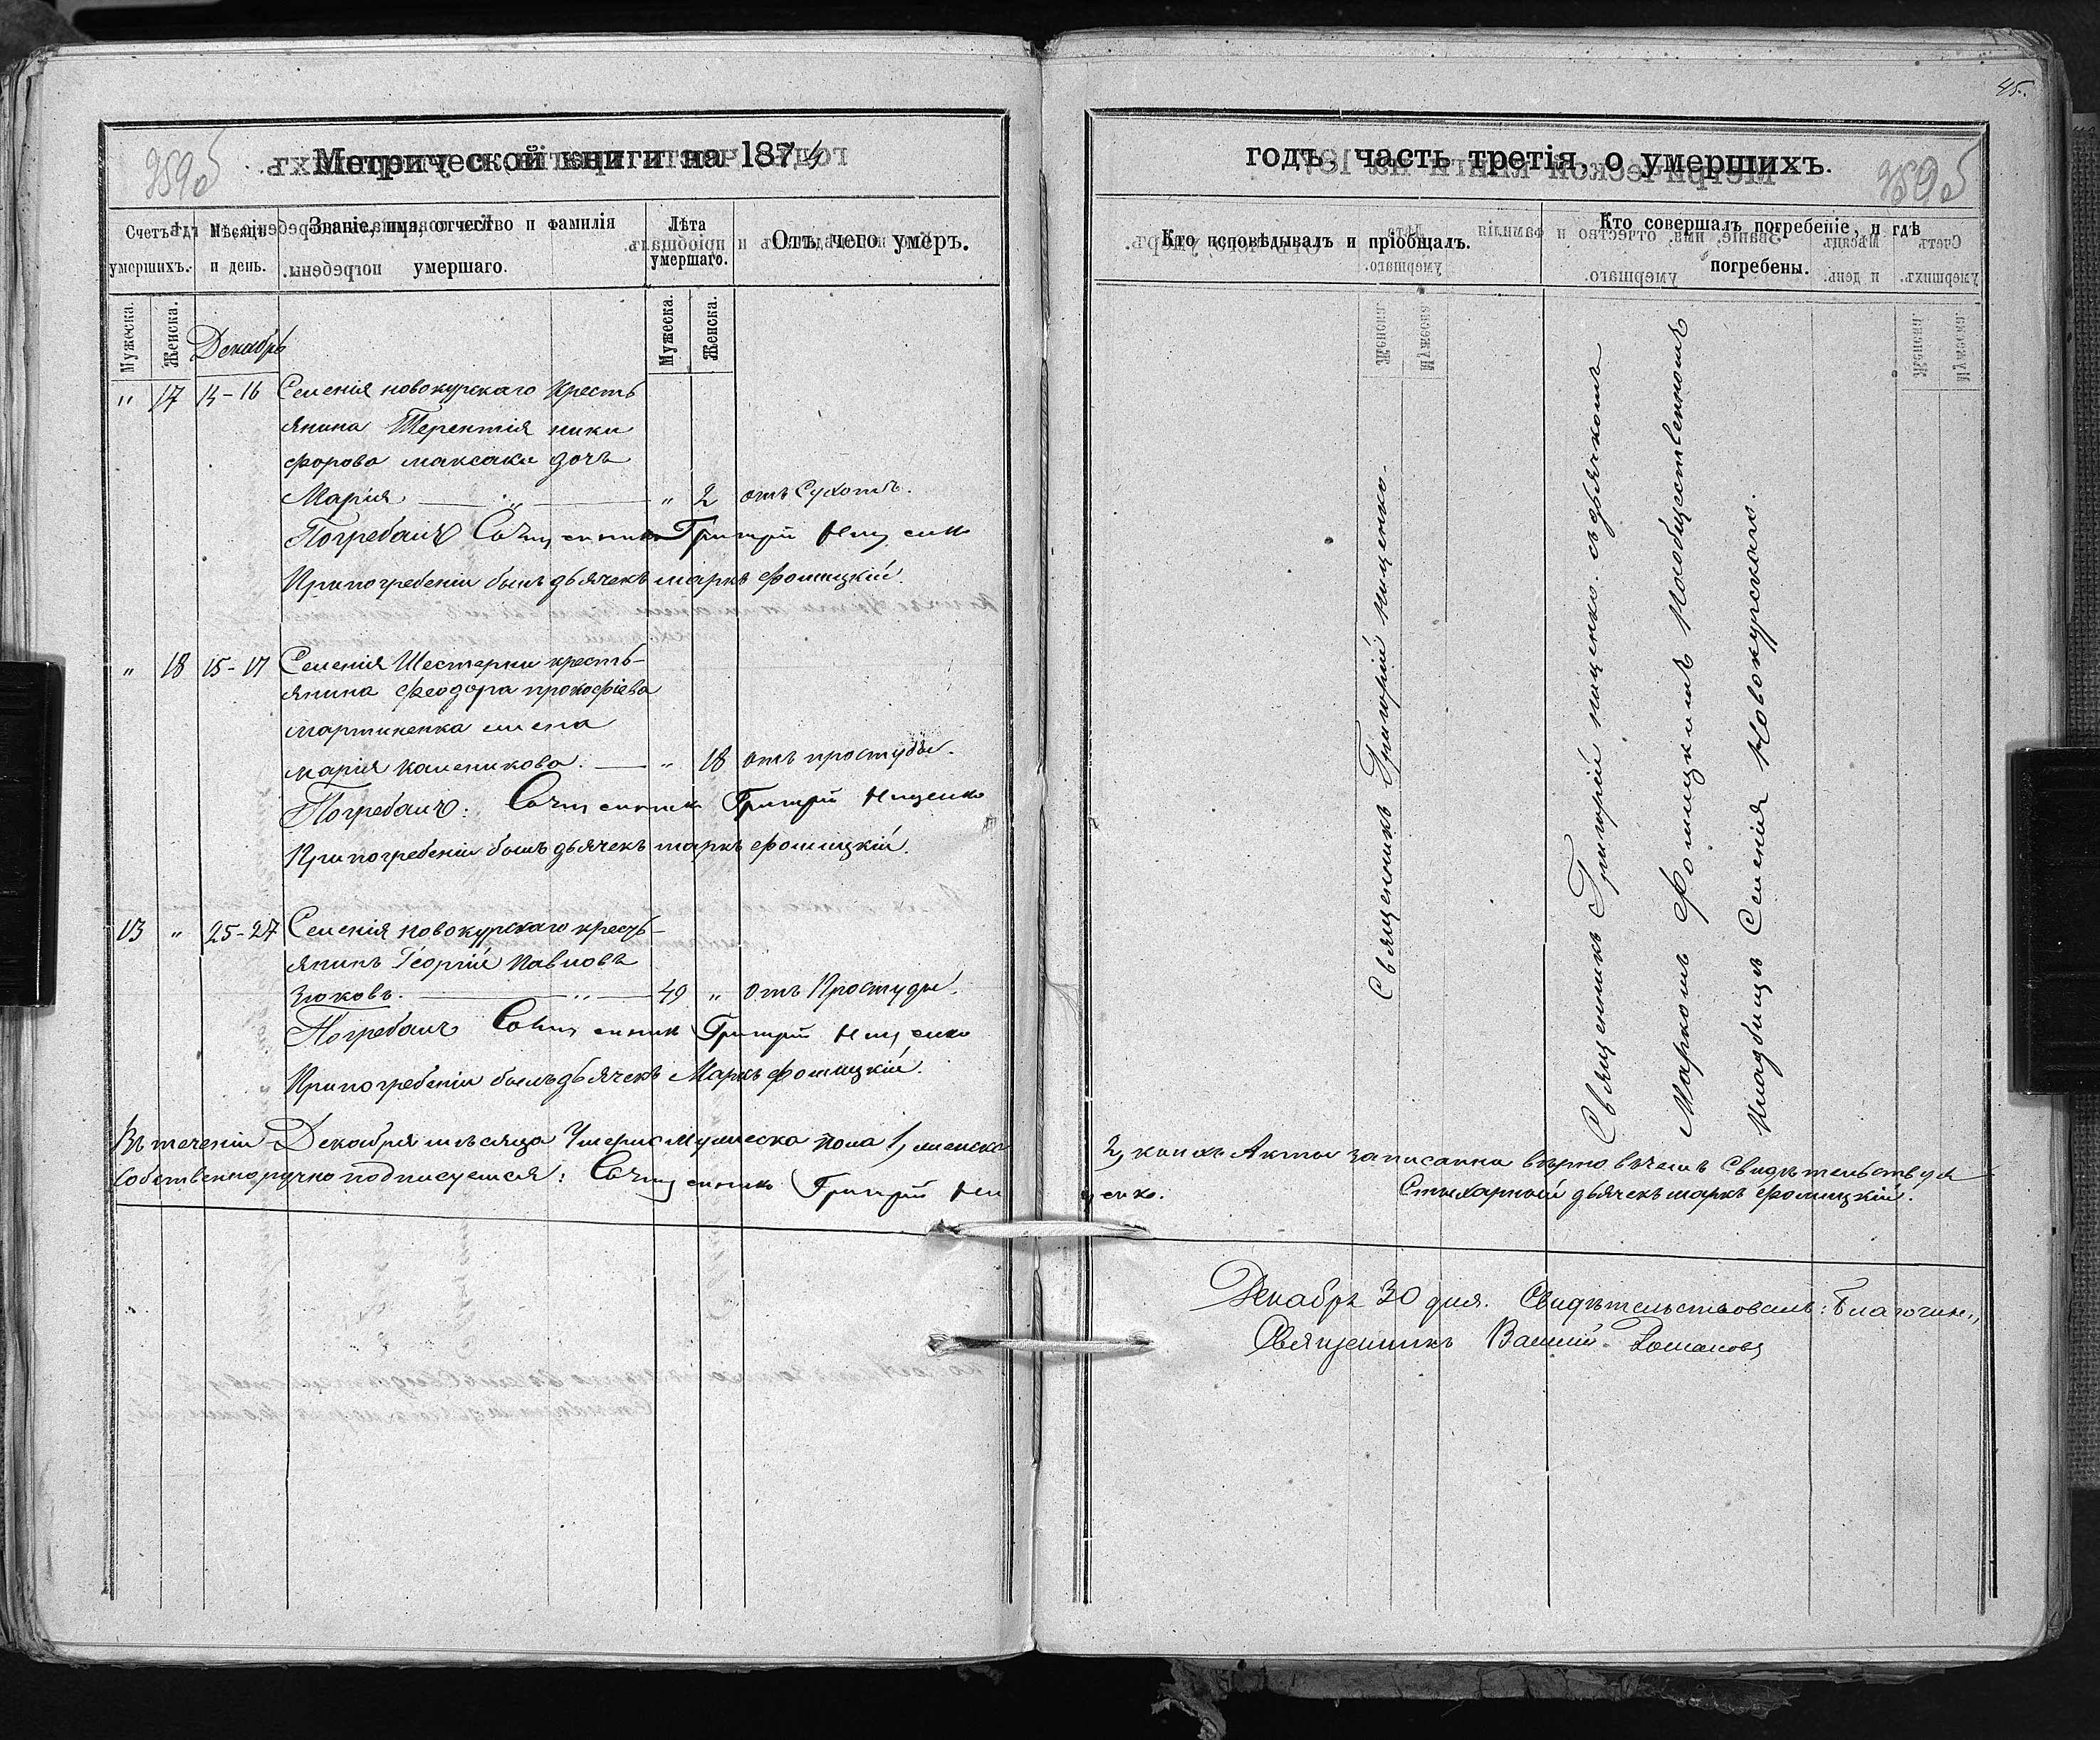 45.
Метрической книги на 1874
Счетъ умершихъ.
Мѣсяцъ и день.
Званіе, имя, отчество и фамилія умершаго.
Лѣта умершаго.
Отъ чего умеръ.
Мужеска. Женска.
Мужеска. Женска.
Декабрь
" 17 14-16 Селенія новокурскаго кресть
янина Терентія ники
форова максака дочь
Марія " " 2 отъ Сухотъ.
Погребалъ Священникъ Григорій Нищенко
При погребеніи былъ дьячекъ маркъ фомицкій.
" 18 15-17 Селенія Шестерни кресть-
янина феодора прокофіева
мартиненка
марія " 18 отъ простуды.
Погребалъ: Священникъ Григорій Нищенко
При погребеніи былъ дьячекъ маркъ фомицкій.
13 " 25-27 Селенія новокурскаго кресть-
янинъ Георгій Павловъ
Зюковъ. " 49 " отъ Простуды.
Погребалъ Священникъ Григорій Нищенко
При погребеніи былъ дьячекъ Маркъ фомицкій.
Въ теченіи Декабря мѣсяца Умерло мужеска пола 1, женска
собственноручно подписуемся: Священникъ Григорій Ни
годъ, часть третія, о умершихъ.
Кто исповѣдывалъ и пріобщалъ.
Кто совершалъ погребеніе, и гдѣ погребены.
Священникъ Григорій нищенко.
Священникъ Григорій нищенко. съ дьячкомъ
Маркомъ Фомицкимъ на общественномъ
кладбищѣ Селенія Новокурскаго.
2, коихъ Акты записанна вѣрно въ чемъ Свидѣтельствуя
щенко. Стихарный дьячекъ маркъ фомицкій.
Декабря 30 дня. Свидѣтельствовалъ: Благочин.,
Священникъ Василій Романовъ